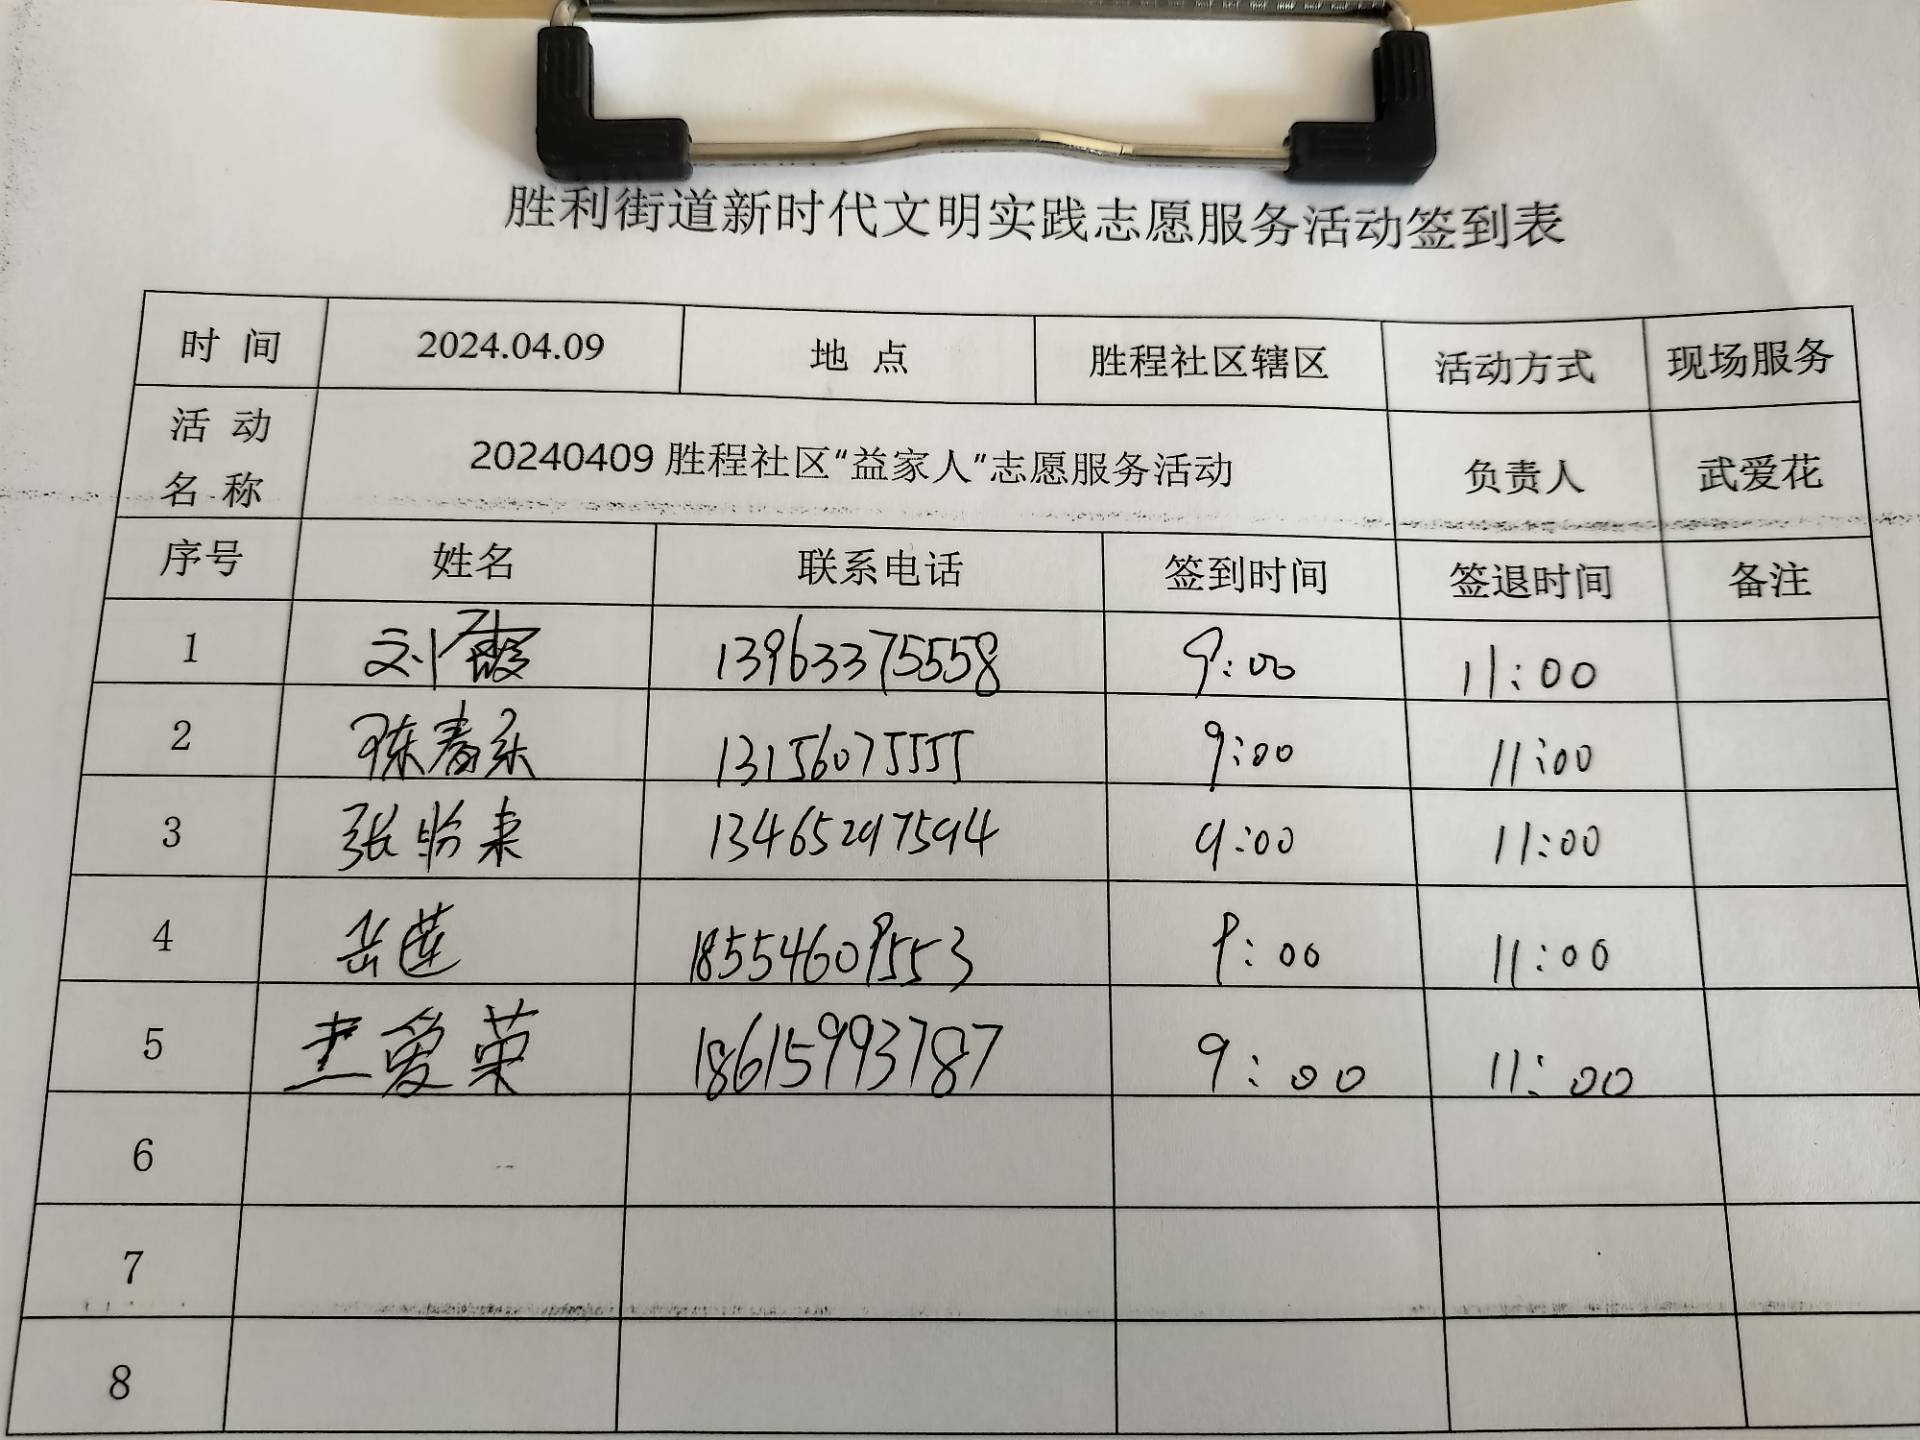 胜利街道新时代文明实践志愿服务活动签到表
时 间 2024.04.09 地 点 胜程社区辖区 活动方式 现场服务
活 动
名 称 20240409 胜程社区“益家人”志愿服务活动 负责人 武爱花
序号 姓名 联系电话 签到时间 签退时间 备注
1 刘霞 13963375558 9:00 11:00
2 陈春东 13156075555 9:00 11:00
3 张盼来 13465297594 9:00 11:00
4 岳莲 18554609553 9:00 11:00
5 爱荣 18615993787 9:00 11:00
6
7
8